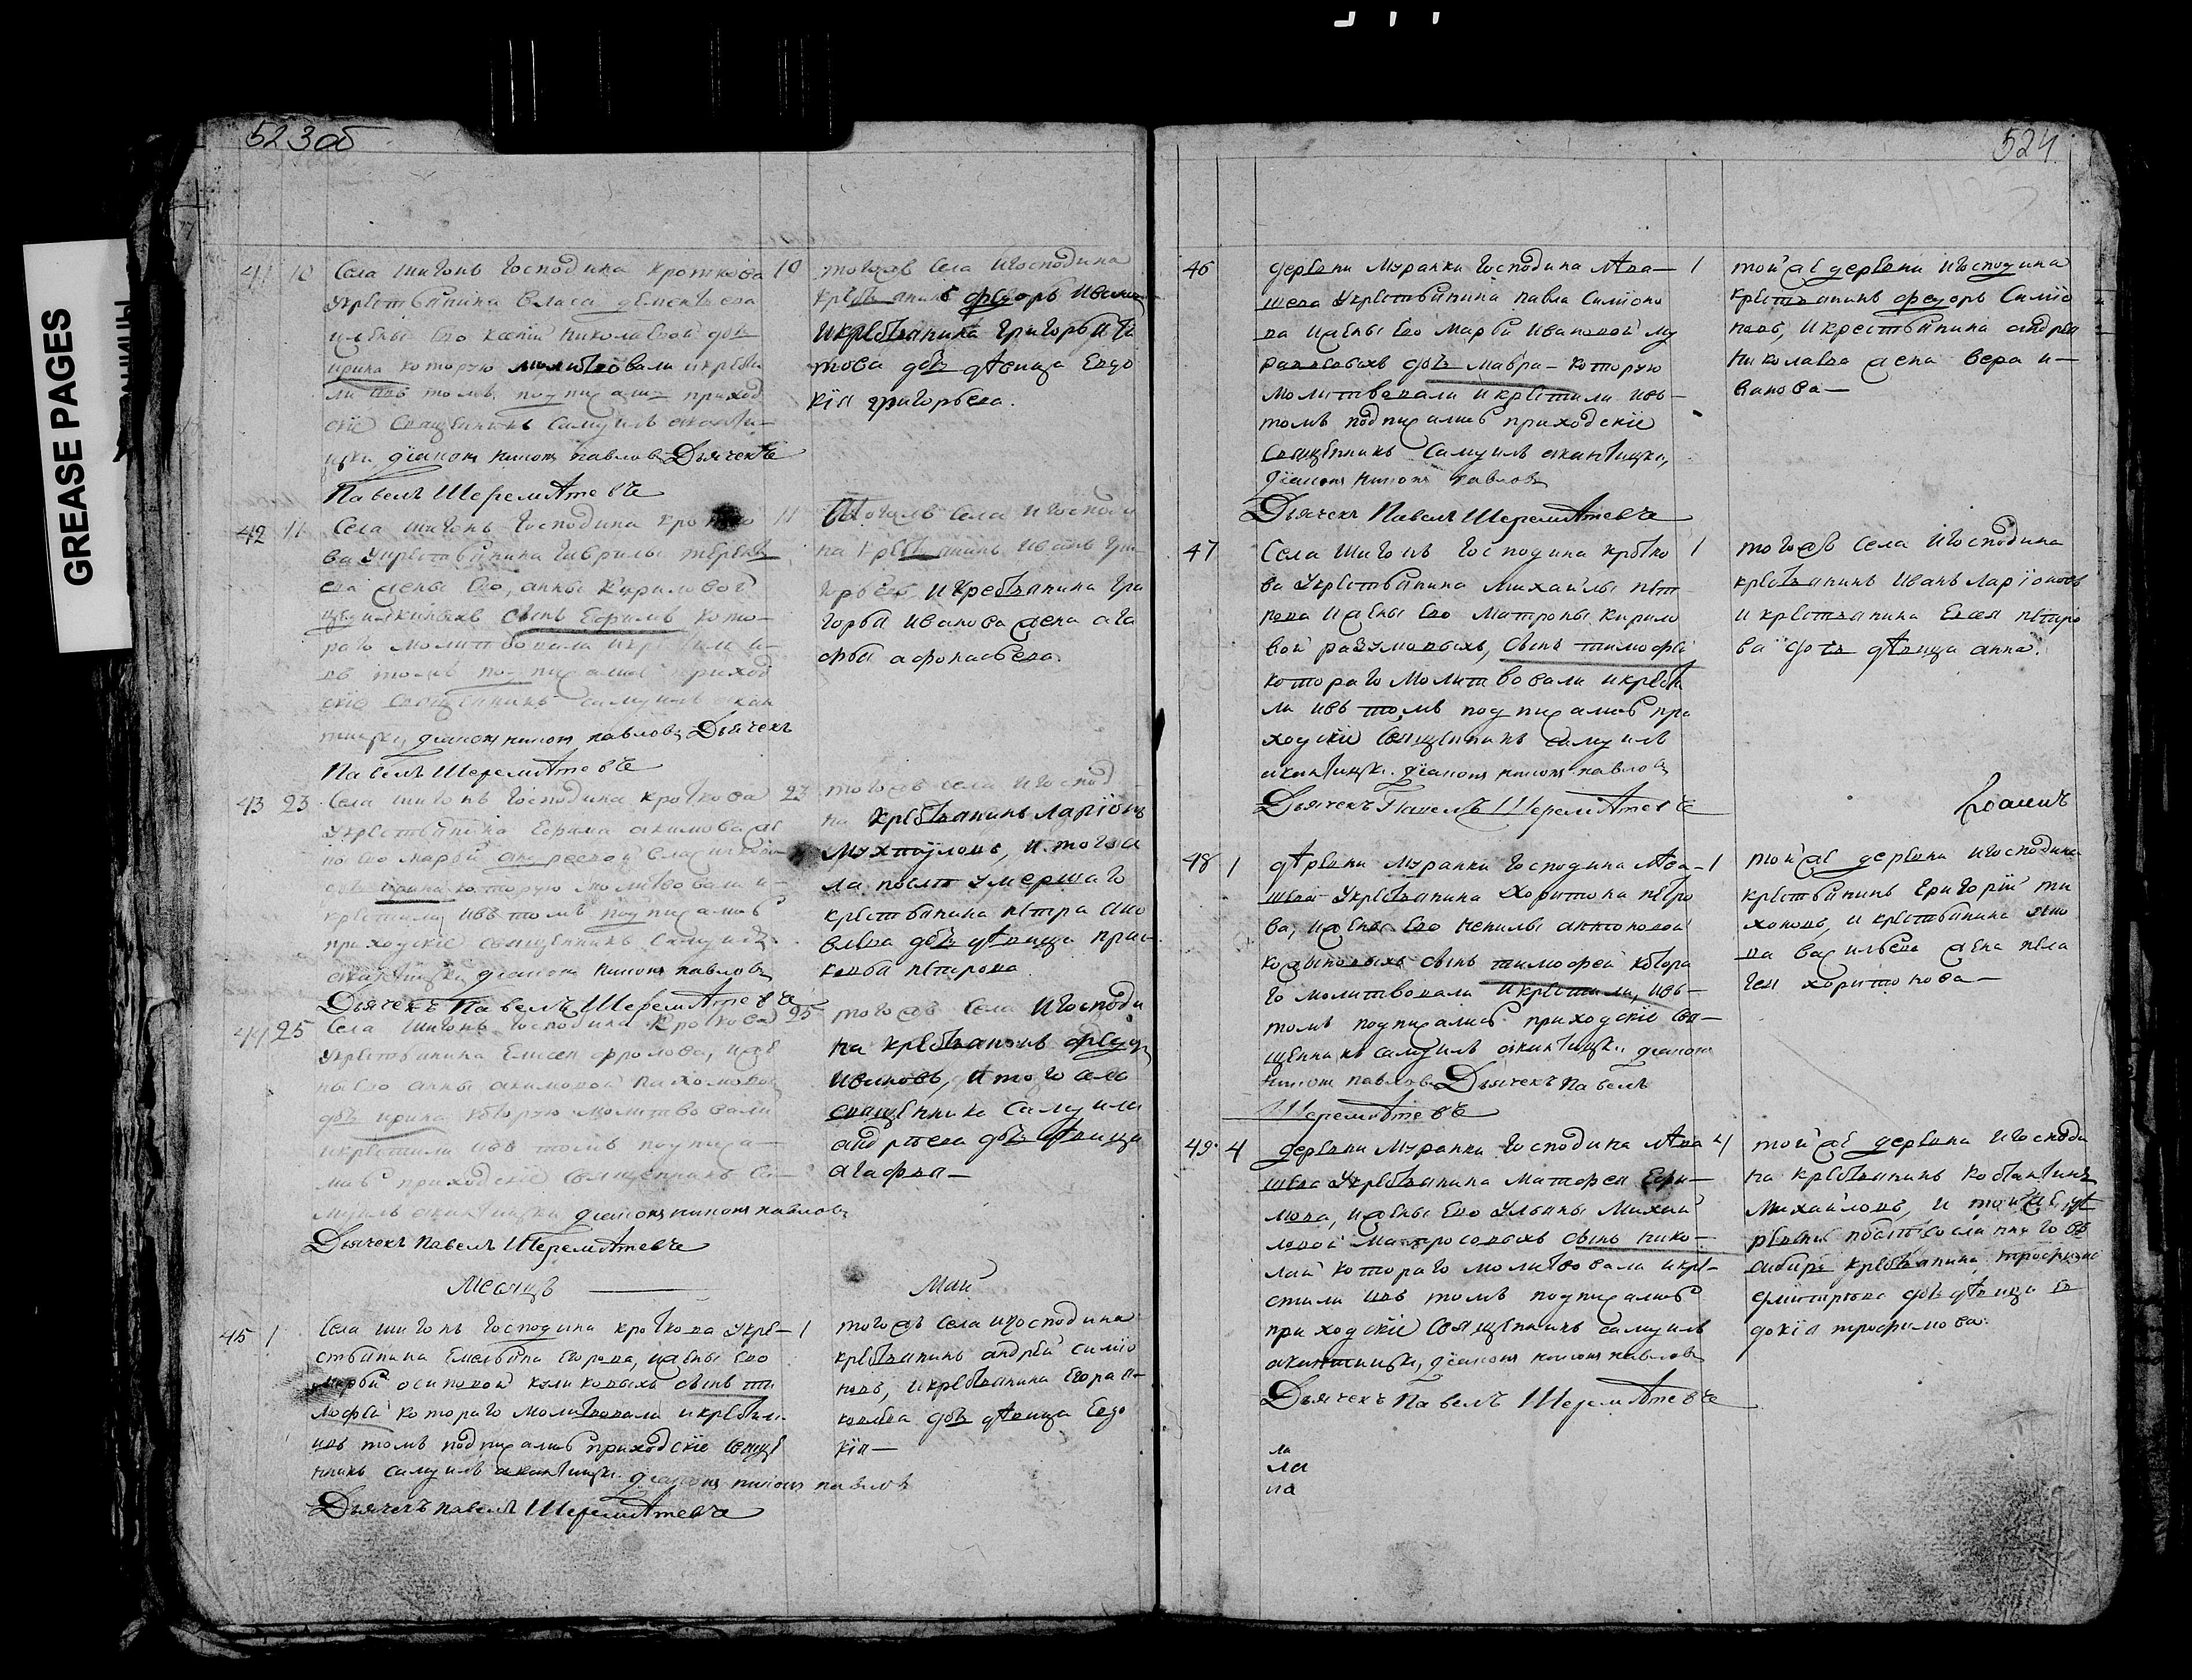 GREASE PAGES
523об
41 10 Села Шигонъ Господина Кроткова
Укрестьянина Власа Дементьева
ижены Его Николаевой дочь
ирина которую молитвовали икрести
ли ивъ томъ подписались приход
скіе Священникъ Самуилъ
діаконъ павловъ Дьячекъ
Павелъ Шереметевъ
10 тогожъ Села Игосподина
крестьянинъ федоръ Ивановъ
Икрестьянина Григорья
това дочь девица Евдо
кія григорьева.
42 11 Села Шигонъ Господина Кротко
ва Укрестьянина Гаврилы
ева жены Его, анны Кириловой
сынъ Ефримъ кото
раго молитвовали икрестили и
въ томъ подписались приход
скіе Священникъ Самуилъ
діаконъ павловъ Дьячекъ
Павелъ Шереметевъ
11 тогожъ Села Игосподи
на крестьянинъ Иванъ Гри
горьевъ Икрестьянина Гри
горья Иванова жена ага
фья афонасьева
43 23 Села Шигонъ Господина Кроткова
Укрестьянина Ефима акимова же
ны Его марьи андреевой
дочь ирина которую молитвовали и
крестили, ивъ томъ подписались
приходскіе священникъ Самуилъ
діаконъ павловъ
Дьячекъ Павелъ Шереметевъ
23 тогожъ села Игоспод
на крестьянинъ Ларіонъ
и тогожъ
ла послѣ умершаго
крестьянина петра
дочь девица прас
ковья петрова
44 25 Села Шигонъ Господина Кроткова
Укрестьянина Елисея фролова, иже
ны Его анны акимовой пахомовой
дочь ирина которую молитвовали
икрестили ивъ томъ подписа
лись приходскіе священникъ Са
муилъ діаконъ павловъ
Дьячекъ Павелъ Шереметевъ
25 тогожъ Села Игосподи
на крестьянинъ федоръ
Ивановъ, Итогожъ села
священника Самуила
андреева дочь девица
агафья
Месяцъ Май
45 1 Села Шигонъ Господина Кроткова Укре
стьянина Емельяна Егорова, ижены Его
марьи осиповой куликовыхъ сынъ ти
мофей котораго молитвовали икрестили
ивъ томъ подписались приходскіе свяще
нникъ Самуилъ діаконъ павловъ
Дьячекъ Павелъ Шереметевъ
1 тогожъ Села игосподина
крестьянинъ андрей симіо
новъ, икрестьянина Егора я
ковлева дочь девица Евдо
кія
524
46 деревни Муранки Господина
шева Укрестьянина павла Симіоно
ва ижены Его Марьи Ивановой му
дочь мавра которую
молитвовали и крестили ивъ
томъ подписались приходскіе
Священникъ Самуилъ
діаконъ павловъ
Дьячекъ Павелъ Шереметевъ
1 тойже деревни Игосподина
крестьянинъ федоръ Симіо
новъ, Икрестьянина андрея
николаева жена вера и
ванова
47 Села Шигонъ Господина Кротко
ва Укрестьянина Михайлы пет
рова Ижены Его Матроны Кирило
вой разумовыхъ, сынъ тимофей
котораго Молитвовали икрести
ли ивъ томъ подписались при
ходскіе Священникъ Самуилъ
діаконъ павловъ
Дьячекъ Павелъ Шереметевъ
1 тогожъ села Игосподина
крестьянинъ Иванъ Ларіоновъ
и крестьянина Евсея петро
ва дочь девица анна.
48 1 деревни Муранки Господина
шева Укрестьянина Харитона петро
ва, ижены Его ненилы антоновой
сынъ тимофей котора
го молитвовали икрестили, ивъ
томъ подписались приходскіе Свя
щенникъ Самуилъ діаконъ
павловъ Дьячекъ Павелъ
Шереметевъ
1 тойже деревни Игосподина
крестьянинъ Григорій ти
хоновъ, и крестьянина
ва васильева жена пела
гея харитонова
49 4 деревни Муранки Господина
шева Укрестьянина Матфея Ефи
мова, ижены Его Ульяны Михай
ловой Матросовыхъ сынъ нико
лай котораго молитвовали икре
стили ивъ томъ подписались
приходскіе Священникъ Самуилъ
діаконъ павловъ
Дьячекъ Павелъ Шереметевъ
4 тойже деревни Игосподи
на крестьянинъ Костянтинъ
Михайловъ, и тойже де
ревни посля сосланнаго въ
сибирь крестьянина трофима
дмитрева дочь девица Ев
докія трофимова.
ла
ла
ла